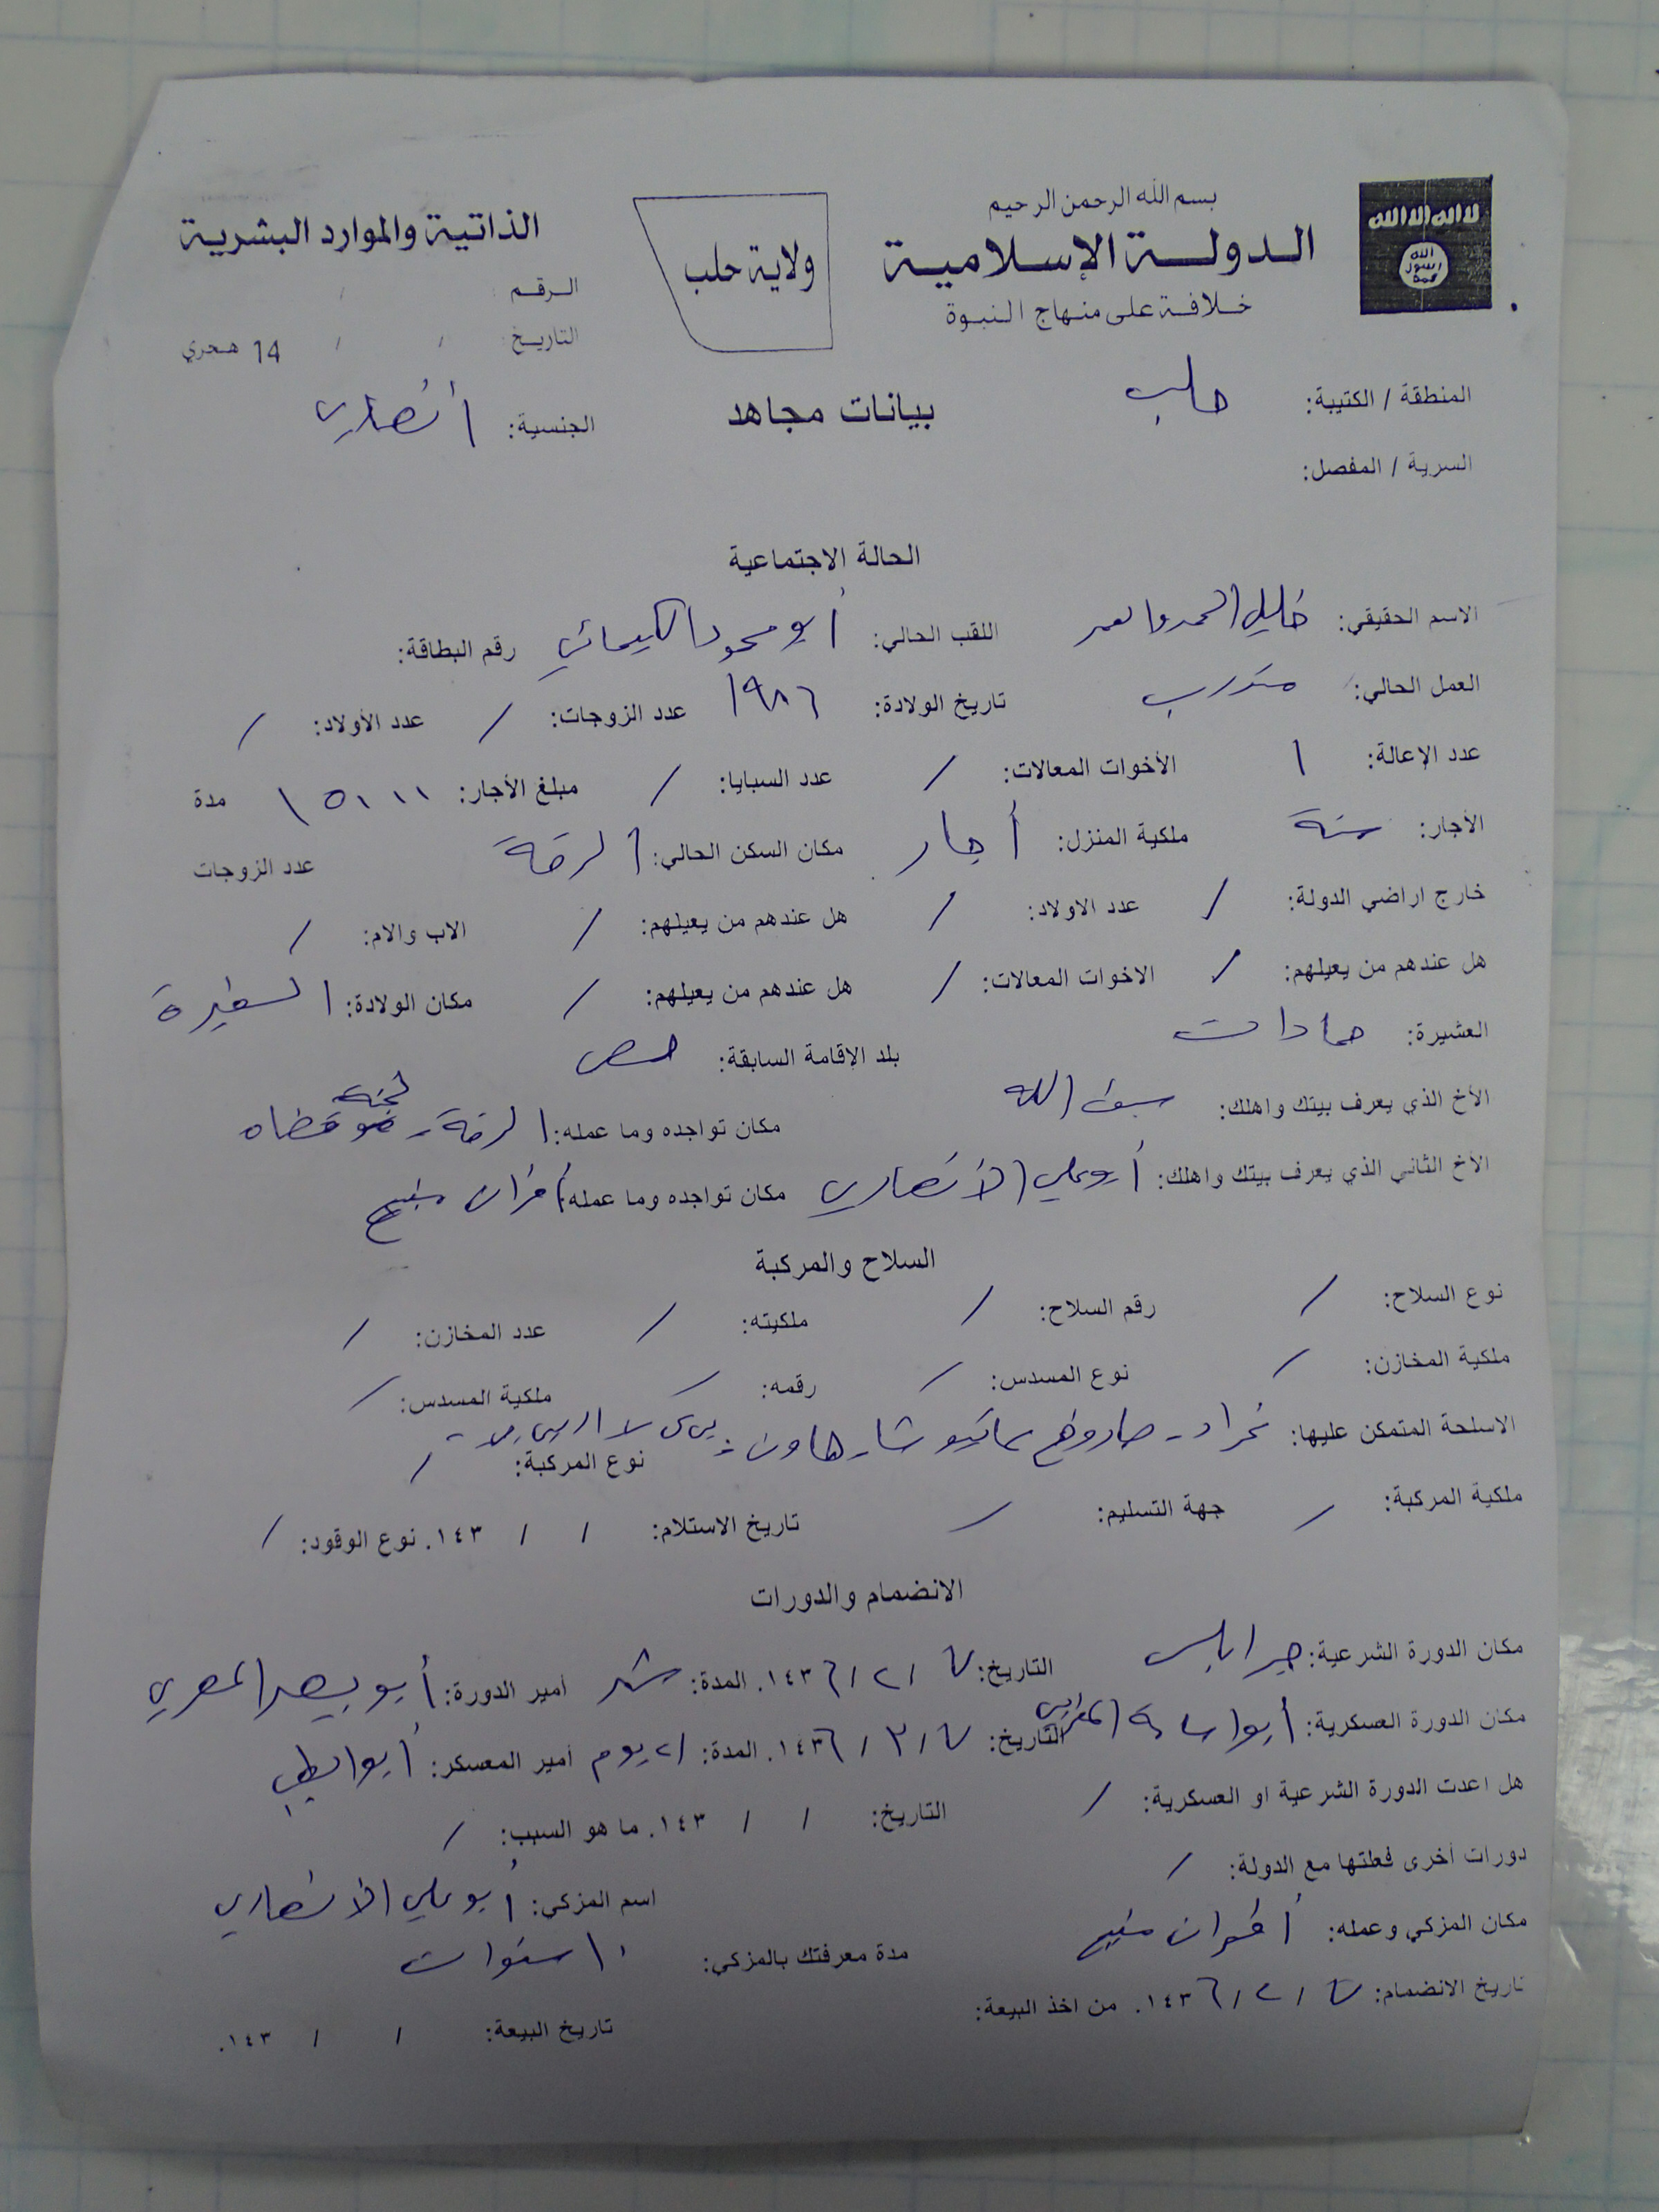 لا اله الا الله
الله
رسول
محمد
بسم الله الرحمن الرحيم
الدولة الإسلامية
خلافة على منهاج النبوة
ولاية حلب
الذاتية والموارد البشرية
الرقم : /
التاريخ : / / 14 هجري
المنطقة / الكتيبة: حلب
بيانات مجاهد
الجنسية: أنصاري
السرية / المفصل:
الحالة الاجتماعية
الاسم الحقيقي: خليل الحمد اللقب الحالي: أبو محمود الكيميائي رقم البطاقة:
العمل الحالي: متدرب تاريخ الولادة: ١٩٨٦ عدد الزوجات: / عدد الأولاد: /
عدد الإعالة: ١ الأخوات المعالات: / عدد السبايا: / مبلغ الأجار: مدة
الأجار: سنة ملكية المنزل: أجار مكان السكن الحالي: الرقة عدد الزوجات
خارج اراضي الدولة: / عدد الاولاد: / هل عندهم من يعيلهم: / الاب والام: /
هل عندهم من يعيلهم: / الاخوات المعالات: / هل عندهم من يعيلهم: / مكان الولادة: السفيرة
العشيرة: حمادات بلد الإقامة السابقة: حمص
الأخ الذي يعرف بيتك واهلك: سيف الله مكان تواجده وما عمله: الرقة -
الأخ الثاني الذي يعرف بيتك واهلك: أبو علي الأنصاري مكان تواجده وما عمله: أفران منبج
السلاح والمركبة
نوع السلاح: / رقم السلاح: / ملكيته: / عدد المخازن: /
ملكية المخازن: / نوع المسدس: / رقمه: / ملكية المسدس: /
الاسلحة المتمكن عليها: هاون نوع المركبة: /
ملكية المركبة: / جهة التسليم: / تاريخ الاستلام: / / ١٤٣. نوع الوقود: /
الانضمام والدورات
مكان الدورة الشرعية: جرابلس التاريخ: ٧ / ٢ / ١٤٣٦. المدة: شهر أمير الدورة: أبو بصير المصري
مكان الدورة العسكرية: أبو اسامة المغربي التاريخ: ٧ / ٣ / ١٤٣٦. المدة: ٢١ يوم أمير المعسكر: أبو
هل اعدت الدورة الشرعية او العسكرية: / التاريخ: / / ١٤٣. ما هو السبب: /
دورات أخرى فعلتها مع الدولة: /
اسم المزكي: أبو علي الأنصاري
مكان المزكي وعمله: أفران منبج مدة معرفتك بالمزكي: ١٠ سنوات
تاريخ الانضمام: ٧ / ٢ / ١٤٣٦. من اخذ البيعة: تاريخ البيعة: / / ١٤٣.